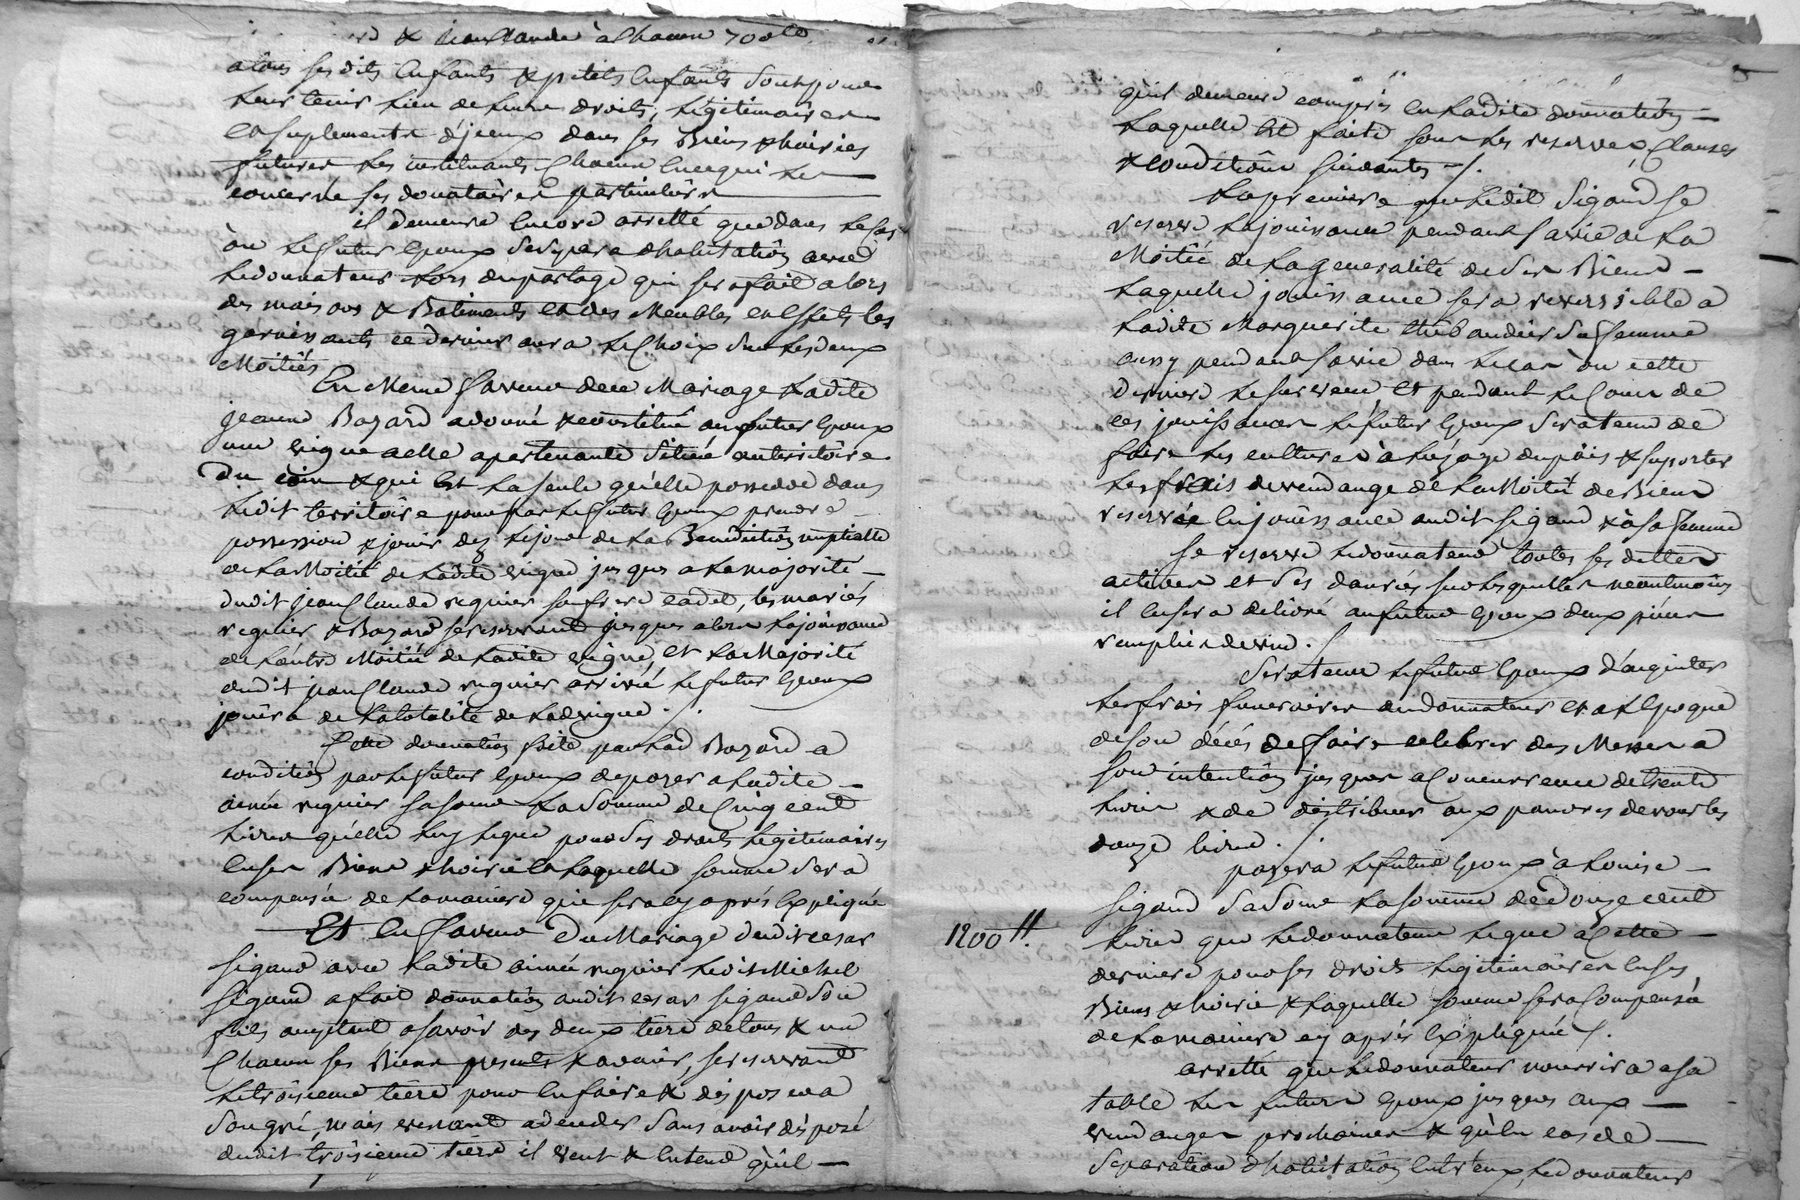 & jean Claude à Chacun 700 ld
alors ses dits Enfants & petits Enfants sont pour
leur tenir lieu de leurs droits, Légitimaires
et suplements d'jceux dans ses Biens & hoiries
futures les instituants Chacun en ce qui les
concerne ses donataires particuliers
il demeure Encore arretté que dans le Cas
où le futur Epoux se sépara d'habitation avec
le donnateur lors du partage qui sera fait alors
des maisons & Batiments et des Meubles et Effets les
garnissants ce dernier aura le Choix sur les deux
Moitiés
En Meme faveur de ce Mariage Ladite
jeanne Bozard a donné & constitué au futur Epoux
une vigne a elle apartenante Située au territoire
Du coin & qui Est la seule qu'elle possede dans
ledit territoire pour par le futur Epoux prendre
possession & jouir dez le jour de la Bénédiction nuptialle
de la Moitié de ladite vigne jusques a la majorité
dudit jean Claude regnier son frere cadet, les mariés
regnier & Bozard se reservant jusques alors la joüissance
de l'autre Moitié de ladite vigne, et la Majorité
dudit jean Claude regnier arrivée le futur Epoux
joüira de la totalité de lad. vigne ./.
Cette donnation faite par lad Bozard a
condition par le futur Epoux de payer a ladite
aimée regnier sa soeur la Somme de Cinq cent
livres qu'elle luy legue pour ses droits légitimaires
en ses Biens & hoirie Laquelle somme sera
compensée de la maniere qui sera cy après Expliqué
Et En faveur Du Mariage dudit cesar
Sigaud avec ladite aimée regnier ledit Michel
Sigaud a fait donnation audit cesar Sigaud Son
fils acceptant a savoir des deux tiers de tous & un
Chacun ses Biens presents & avenir, se reservant
le troisieme tiers pour En faire & disposer a
Son gré, mais venant a deceder Sans avoir disposé
dudit troisieme tiers il veut & Entend qu'il
qu'il demeure compris En Ladite donnation
Laquelle Est faite sous les reserves, Clauses
& Conditions Suivantes ./.
La premiere que ledit Sigaud se
reserve la joüissance pendant sa vie de la
Moitié de la generalité de Ses Biens
Laquelle joüissance sera reversible a
Ladite Marguerite thibaudier Sa femme
aussy pendant sa vie dans le cas où cette
derniere le survecu, Et pendant le Cours de
ces joüissances le futur Epoux Sera tenu de
faire les cultures à l'usage du païs & suporter
les frais de vendange de la Moitié de Biens
reservée En joüissance audit Sigaud & à sa femme
Se reserve le donnateur toutes ses dettes
actives et Ses danrées sur lesquelles neantmoins
il En sera delivré au futur Epoux deux pieces
remplies de vin ./.
Sera tenu le futur Epoux d'acquitter
les frais funeraires du donnateur et a l'Epoque
de son décés de faire celebrer des Messes a
Son intention jusques a Concurrence de trente
livres & de distribuer aux pauvres de vourles
douze livres ./.
payera le futur Epoux à Louise
Sigaud Sa Soeur la somme de douze cent
1200 ll. livres que le donnateur legue à Cette
derniere pour ses droits légitimaires En ses
Biens & hoirie & Laquelle somme sera Compensée
de la maniere cy après Expliquée ./.
arretté que le donnateur nourrira a sa
table les futurs Epoux jusques aux
vendanges prochaines & qu'En cas de
Separation d'habitation Entr'eux, le donnateur